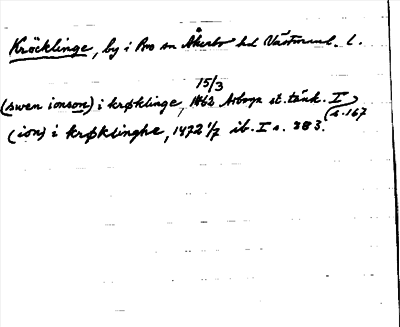 Kröcklinge, by i Bro sn Åkerbo hd Västmanl. l.
15/3
(swen ionson) i krøklinge, 1462 Arboga st. tänk. I
(s. 167
(ion) i krøklinghe, 1472 1/7 ib. I s. 383.